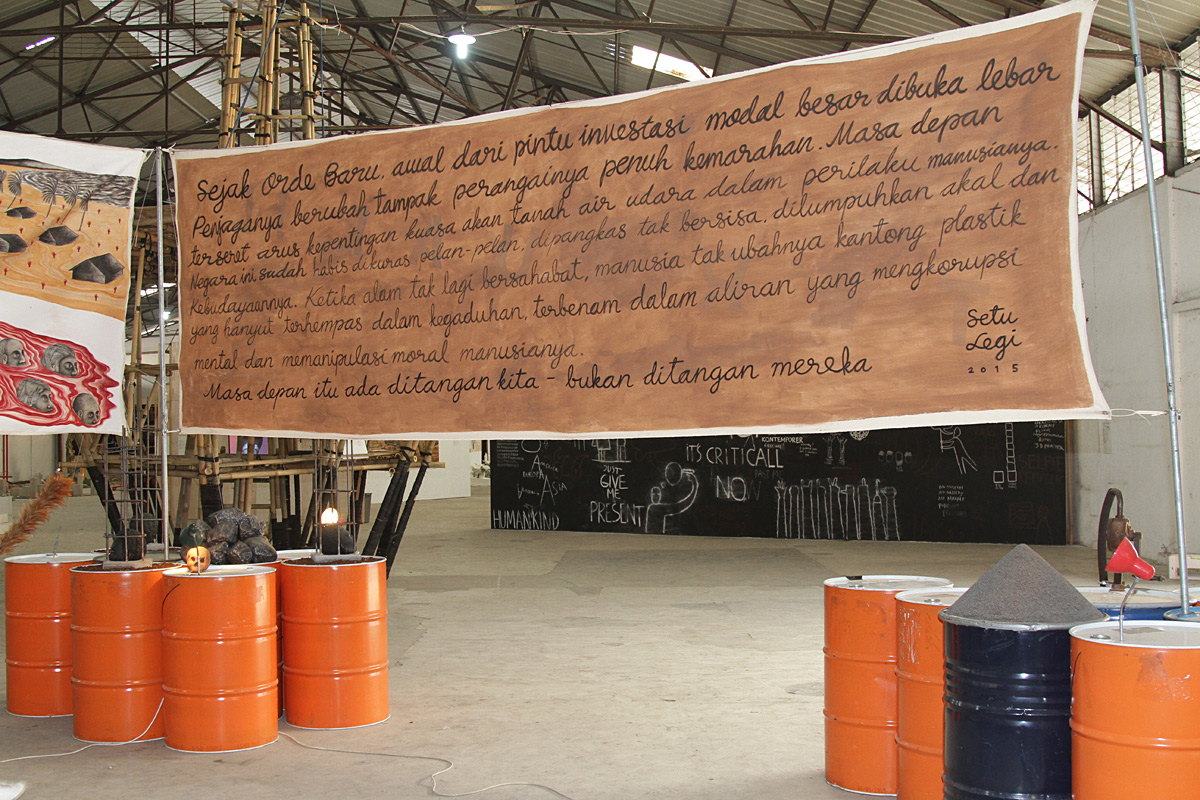 Sejak Orde Baru, awal dari pintu investasi modal besar dibuka lebar
Penjaganya berubah tampak perangainya penuh kemarahan. Masa depan
terseret arus kepentingan kuasa akan tanah air udara dalam perilaku manusianya.
Negara ini sudah habis dikuras pelan-pelan, dipangkas tak bersisa, dilumpuhkan akal dan
Kebudayaannya. Ketika alam tak lagi bersahabat, manusia tak ubahnya kantong plastik
yang hanyut terhempas dalam kegaduhan, terbenam dalam aliran yang mengkorupsi
mental dan memanipulasi moral manusianya.
Masa depan itu ada ditangan kita - bukan ditangan mereka
Setu
Legi
2015
CONTEMPORER
IT'S CRITICALL
NOW
JUST
GIVE
ME
PRESENT
HUMANKIND